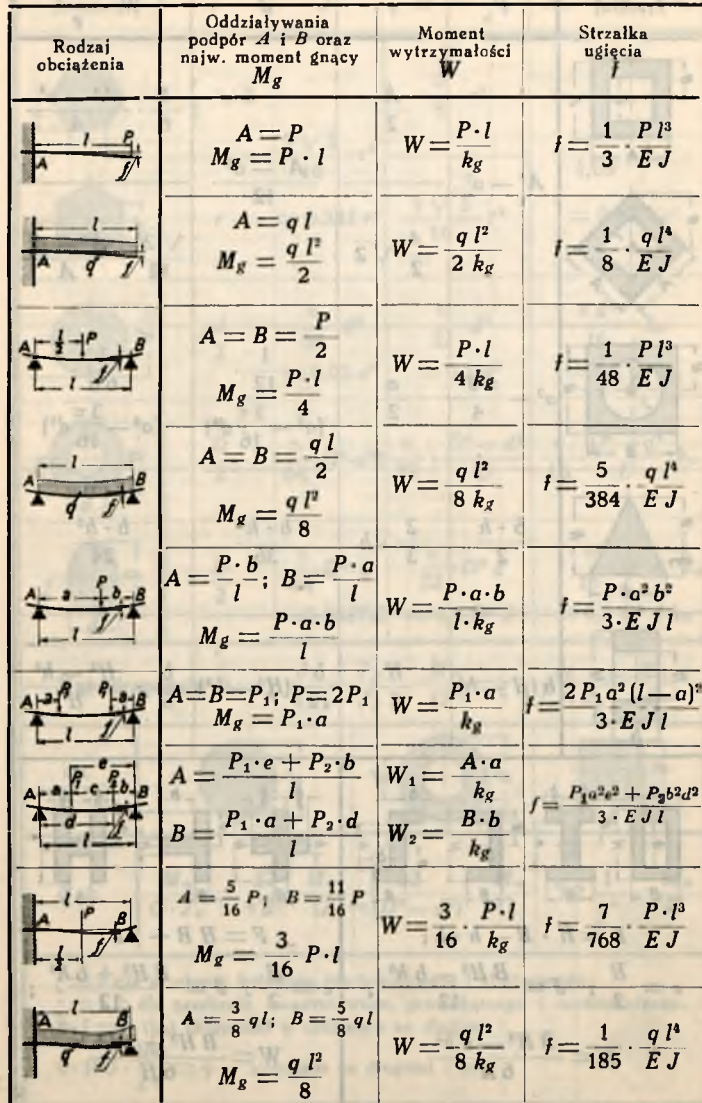 Rodzaj obciążenia | Oddziaływania podpór A i B oraz najw. moment gnący M_g | Moment wytrzymałości W | Strzałka ugięcia f
l P A f | A = P M_g = P · l | W = P·l / k_g | f = 1/3 · P l³ / E J
l A q f | A = q l M_g = q l² / 2 | W = q l² / 2 k_g | f = 1/8 · q l⁴ / E J
A l/2 P B f l | A = B = P/2 M_g = P·l / 4 | W = P·l / 4 k_g | f = 1/48 · P l³ / E J
l A B q f | A = B = q l / 2 M_g = q l² / 8 | W = q l² / 8 k_g | f = 5/384 · q l⁴ / E J
A a P b B f l | A = P·b / l ; B = P·a / l M_g = P·a·b / l | W = P·a·b / l·k_g | f = P·a² b² / 3·E J l
A a P₁ P₁ a B f l | A=B=P₁; P=2P₁ M_g = P₁·a | W = P₁·a / k_g | f = 2 P₁ a² (l—a)² / 3·E J l
e A a P₁ c P₂ b B d f l | A = P₁·e + P₂·b / l B = P₁·a + P₂·d / l | W₁ = A·a / k_g W₂ = B·b / k_g | f = P₁a²e² + P₂b²d² / 3·E J l
l A P B f l/2 | A = 5/16 P; B = 11/16 P M_g = 3/16 P·l | W = 3/16 · P·l / k_g | f = 7/768 · P·l³ / E J
l A B q f | A = 3/8 q l; B = 5/8 q l M_g = q l² / 8 | W = q l² / 8 k_g | f = 1/185 · q l⁴ / E J